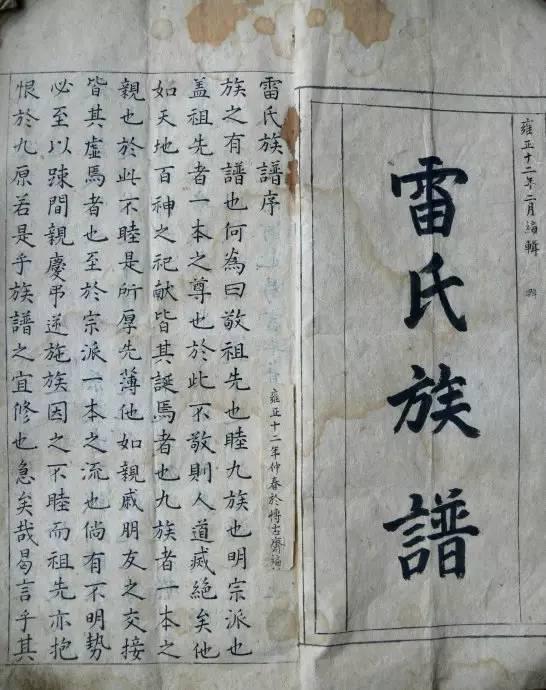 雍正十二年二月編輯
雷氏族譜
雷氏族譜序
雍正十二年仲春於博古齋編
族之有譜也何為曰敬祖先也睦九族也明宗派也
蓋祖先者一本之尊也於此不敬則人道烕絕矣他
如天地百神之祀献皆其誕焉者也九族者一本之
親也於此不睦是所厚先薄他如親戚朋友之交接
皆其虛焉者也至於宗派一本之流也倘有不明勢
必至以踈間親慶弔逆施族因之不睦而祖先亦抱
恨於九原若是乎族譜之宜修也急矣哉曷言乎其